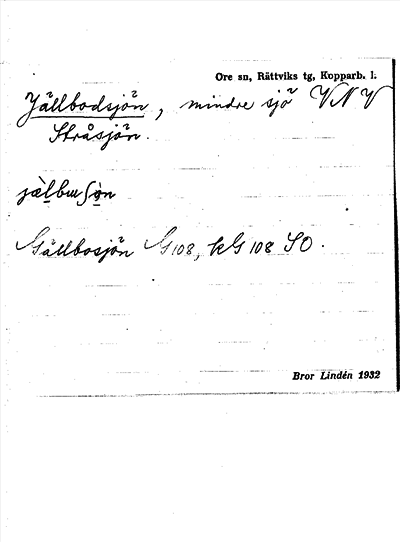 Ore sn, Rättviks tg, Kopparb. l.
Jällbodsjön, mindre sjö VNV
Stråsjön.
Gällbosjön G 108, kG 108 SO.
Bror Lindén 1932